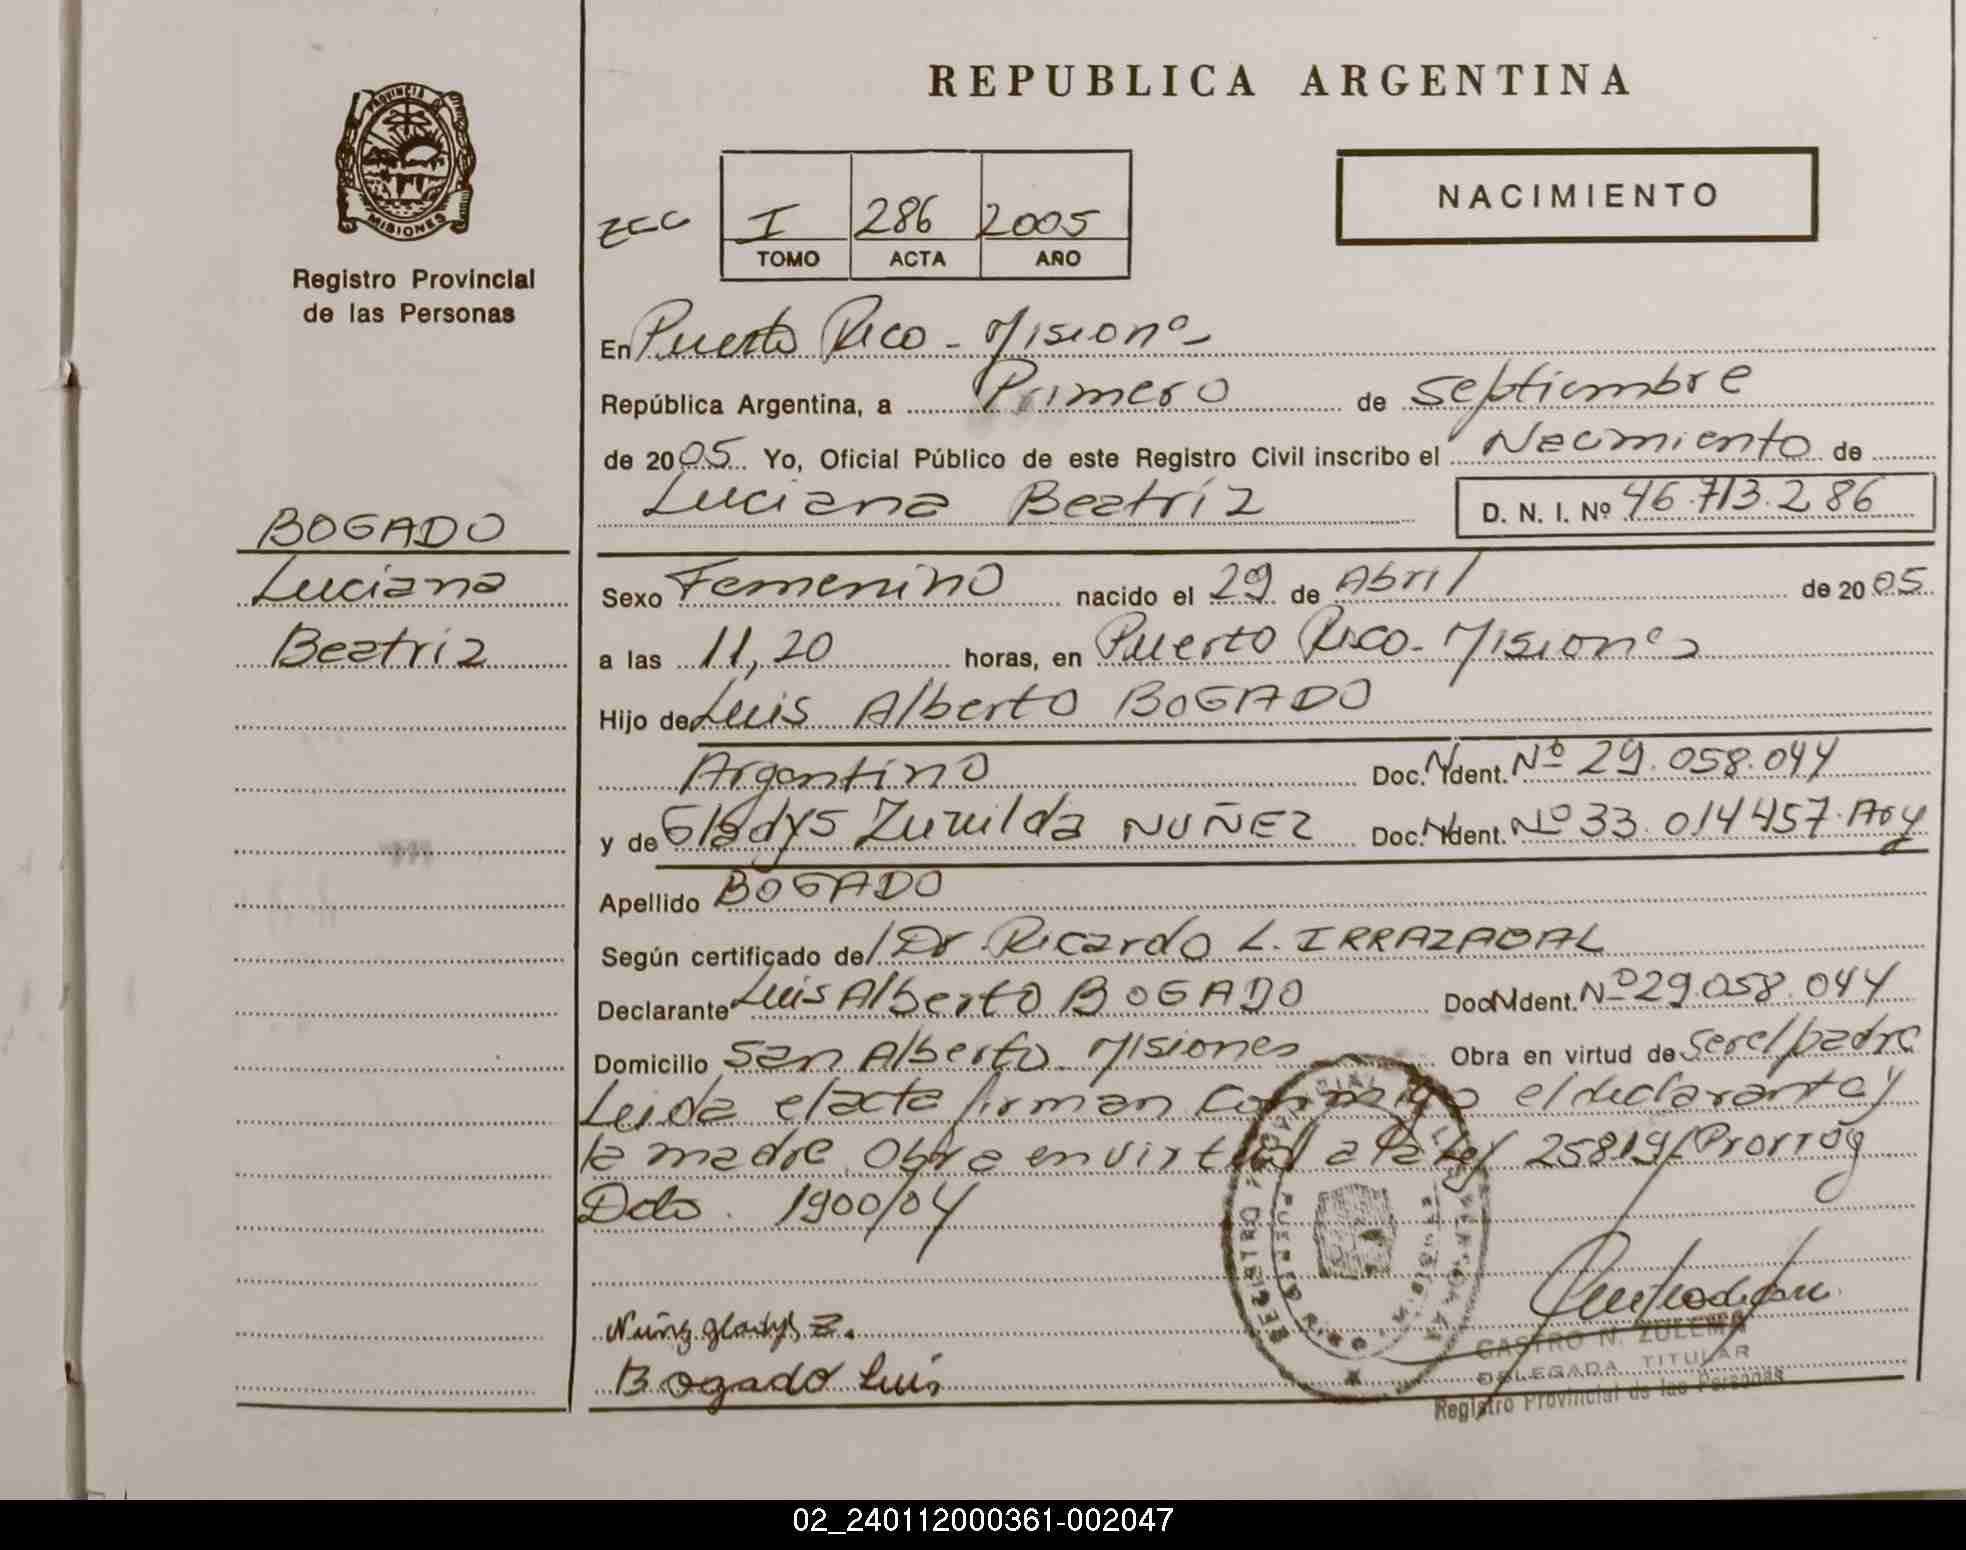 REPUBLICA ARGENTINA
PROVINCIA DE
MISIONES
Registro Provincial
de las Personas
I 286 2005
TOMO ACTA AÑO
NACIMIENTO
En Puerto Rico - Misiones
República Argentina, a Primero de septiembre
de 2005 Yo, Oficial Público de este Registro Civil inscribo el Nacimiento de
Luciana Beatriz D. N. I. Nº 46.713.286
BOGADO
Luciana
Beatriz
Sexo Femenino nacido el 29 de Abril de 2005
a las 11,20 horas, en Puerto Rico - Misiones
Hijo de Luis Alberto BOGADO
Argentino Doc. Ident. Nº 29.058.044
y de Gladys Zunilda NUÑEZ Doc. Ident. Nº 33.014457. Arg
Apellido BOGADO
Según certificado de Dr. Ricardo L. IRRAZABAL
Declarante Luis Alberto BOGADO Doc. Ident. Nº 29.058.044
Domicilio San Alberto. Misiones Obra en virtud de ser el padre
Leida el acta firman conmigo el declarante y
la madre. Obra en virtud a la Ley 25819/Prorrog
Dcto. 1900/04
Nuñez gladys Z.
Bogado Luis
REGISTRO PROVINCIAL DE LAS PERSONAS
MISIONES
CASTRO N. ZULEMA
DELEGADA TITULAR
Registro Provincial de las Personas
02_240112000361-002047